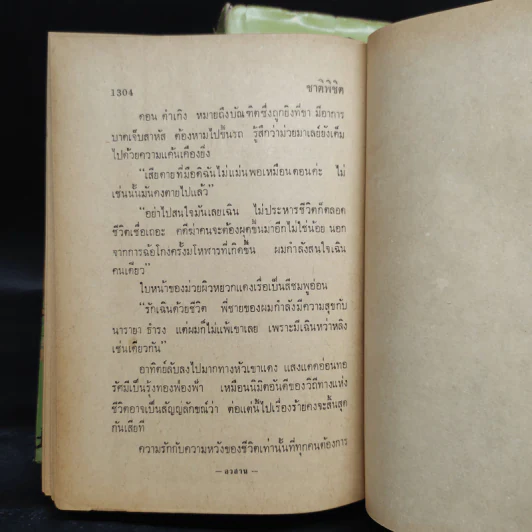 1304
ชาติพิชิต
ดอน คำเกิง หมายถึงบัณฑิตซึ่งถูกยิงที่ขา มีอาการ
บาดเจ็บสาหัส ต้องหามไปขึ้นรถ รู้สึกว่าม่วยมาเลย์ยังเต็ม
ไปด้วยความแค้นเคืองยิ่ง
“เสียดายที่มือดิฉันไม่แม่นพอเหมือนดอนค่ะ ไม่
เช่นนั้นมันคงตายไปแล้ว”
“อย่าไปสนใจมันเลยเฉิน ไม่ประหารชีวิตก็ตลอด
ชีวิตเชื่อเถอะ คดีฆ่าคนจะต้องผุดขึ้นมาอีกไม่ใช่น้อย นอก
จากการฉ้อโกงครั้งมโหฬารที่เกิดขึ้น ผมกำลังสนใจเฉิน
คนเดียว”
ใบหน้าของม่วยผิวหยวกแดงเรื่อเป็นสีชมพูอ่อน
“รักเฉินด้วยชีวิต พี่ชายของผมกำลังมีความสุขกับ
นารายา ธำรง แต่ผมก็ไม่แพ้เขาเลย เพราะมีเฉินหว่าหลิง
เช่นเดียวกัน”
อาทิตย์ลับลงไปมากทางหัวเขาแดง แสงแดดอ่อนทอ
รัศมีเป็นรุ้งทองพ้องฟ้า เหมือนนิมิตอันดีของวิถีทางแห่ง
ชีวิตอาจเป็นสัญญลักษณ์ว่า ต่อแต่นี้ไปเรื่องร้ายคงจะสิ้นสุด
กันเสียที
ความรักกับความหวังของชีวิตเท่านั้นที่ทุกคนต้องการ
— อวสาน —